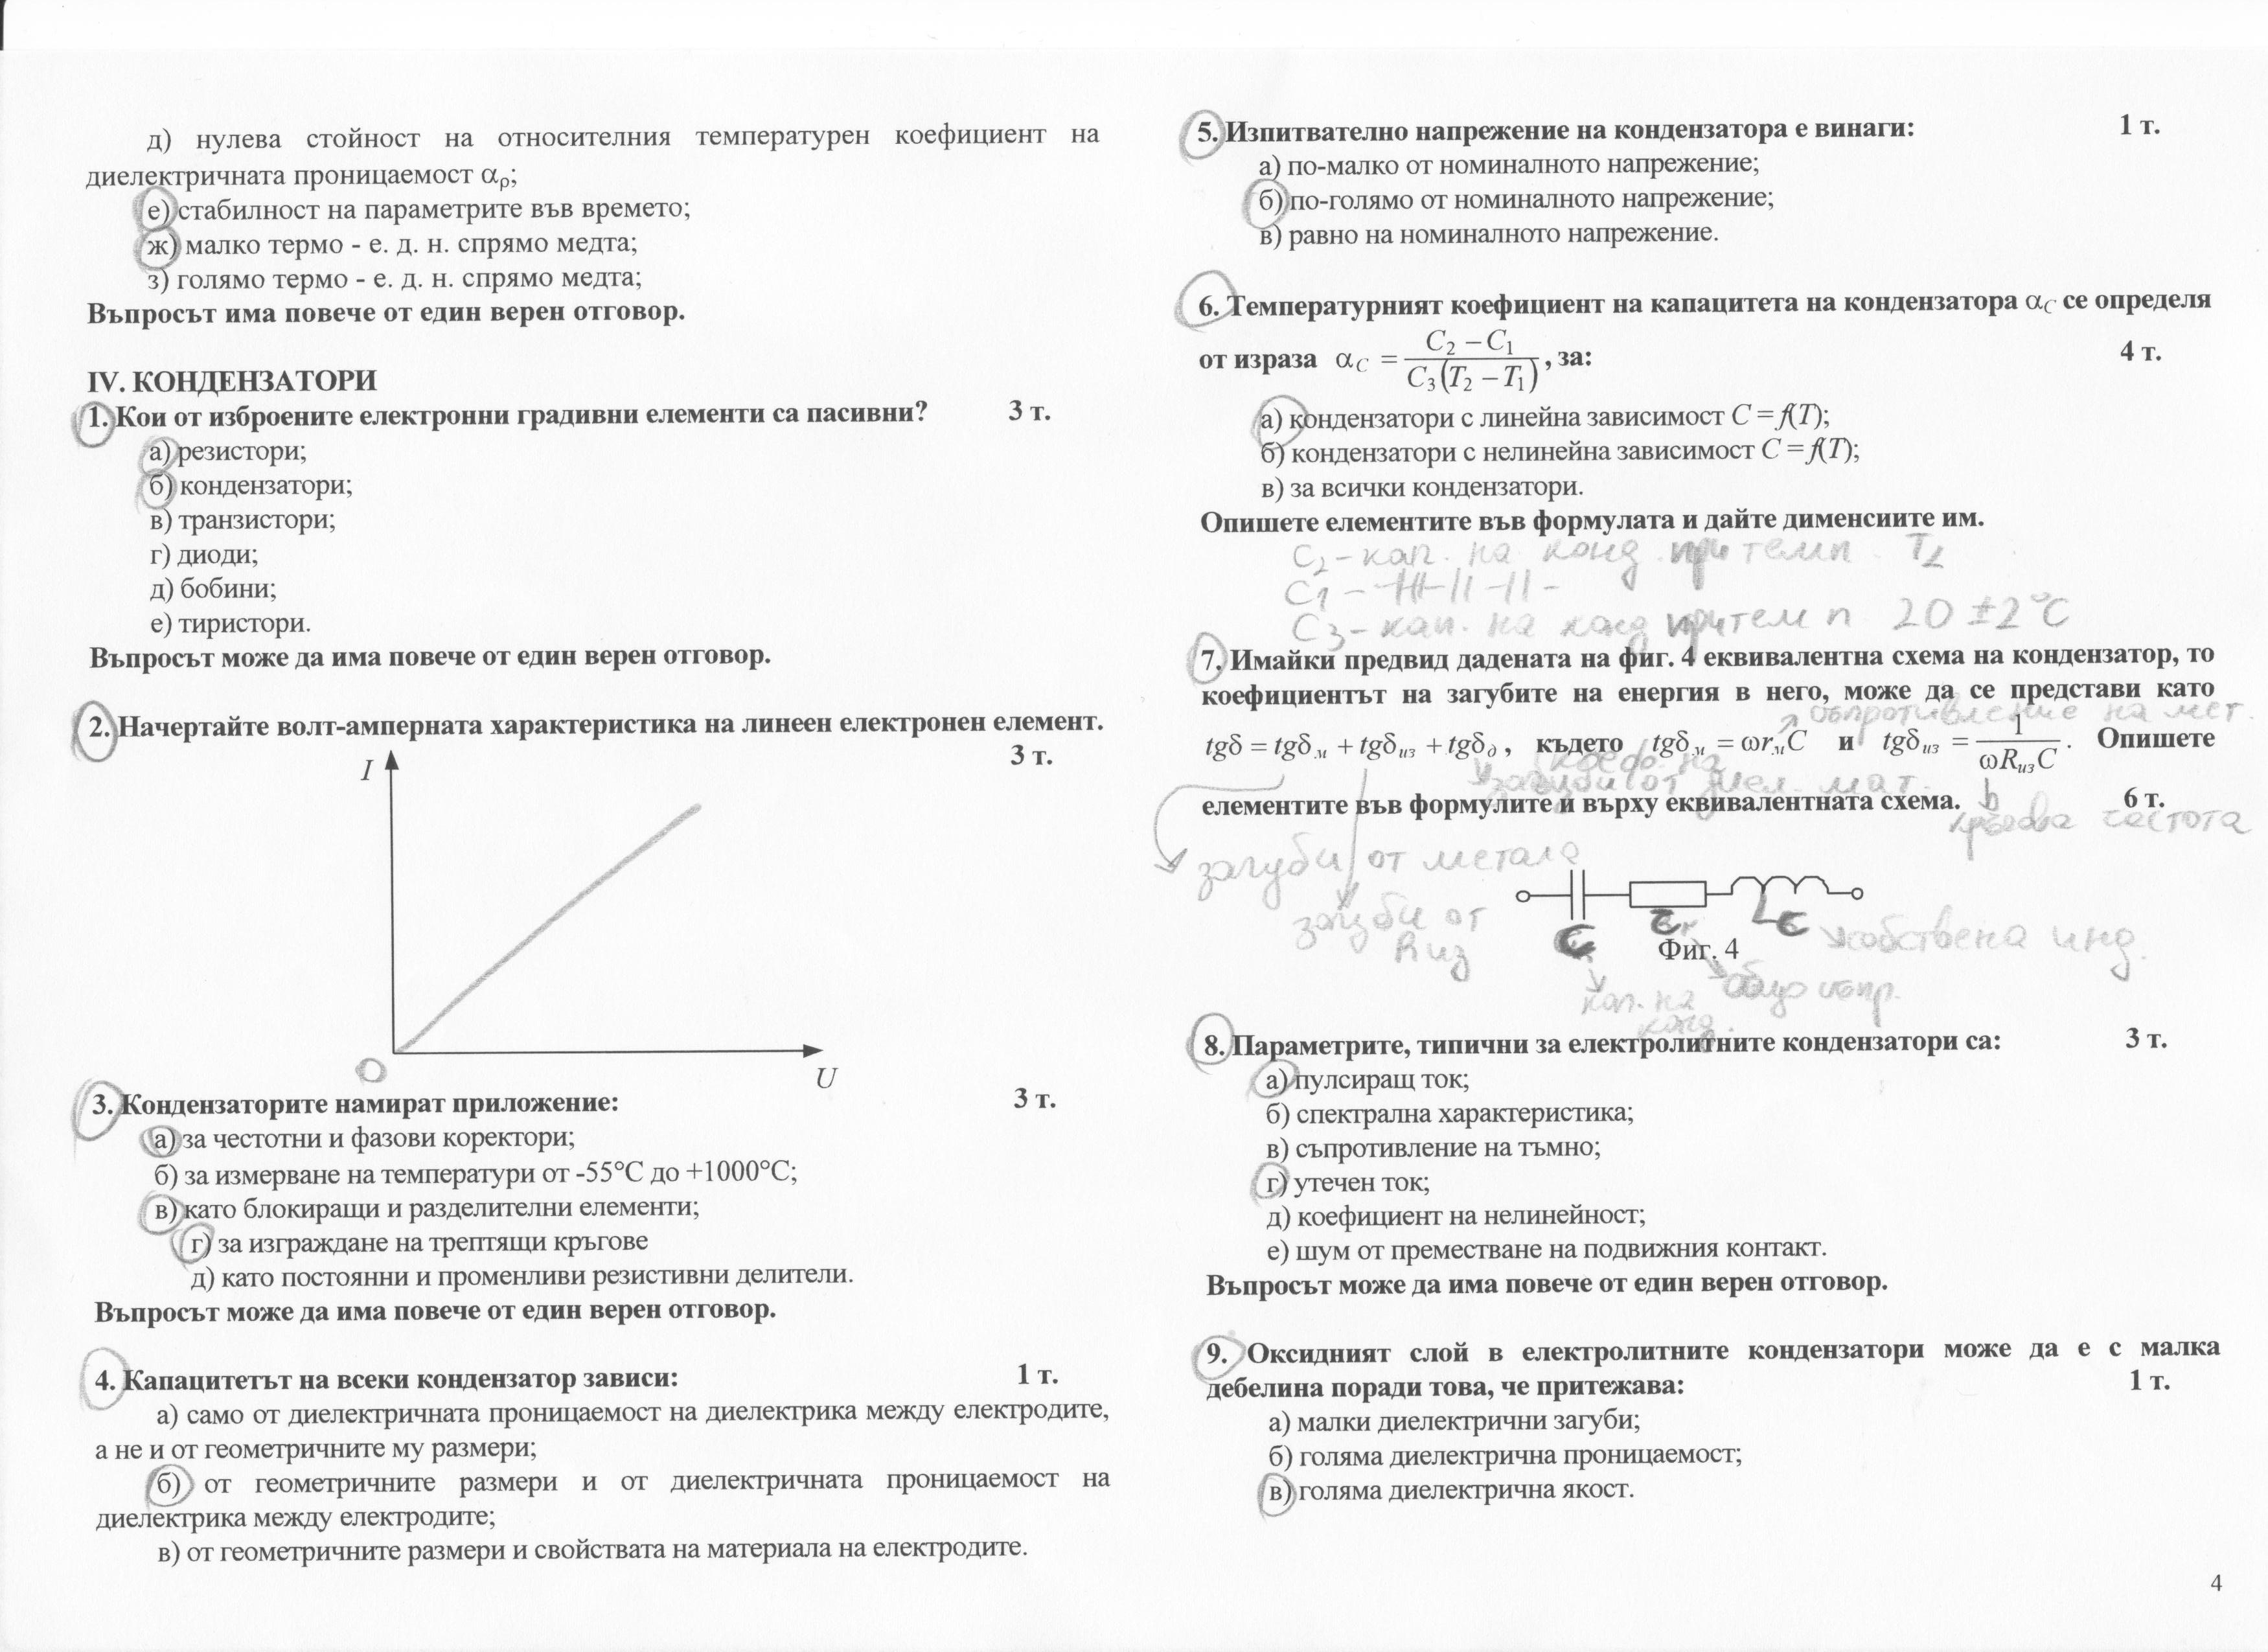 д) нулева стойност на относителния температурен коефициент на
диелектричната проницаемост αρ;
е) стабилност на параметрите във времето;
ж) малко термо - е. д. н. спрямо медта;
з) голямо термо - е. д. н. спрямо медта;
Въпросът има повече от един верен отговор.
IV. КОНДЕНЗАТОРИ
1. Кои от изброените електронни градивни елементи са пасивни? 3 т.
а) резистори;
б) кондензатори;
в) транзистори;
г) диоди;
д) бобини;
е) тиристори.
Въпросът може да има повече от един верен отговор.
2. Начертайте волт-амперната характеристика на линеен електронен елемент.
3 т.
I
O
U
3. Кондензаторите намират приложение: 3 т.
а) за честотни и фазови коректори;
б) за измерване на температури от -55°C до +1000°C;
в) като блокиращи и разделителни елементи;
г) за изграждане на трептящи кръгове
д) като постоянни и променливи резистивни делители.
Въпросът може да има повече от един верен отговор.
4. Капацитетът на всеки кондензатор зависи: 1 т.
а) само от диелектричната проницаемост на диелектрика между електродите,
а не и от геометричните му размери;
б) от геометричните размери и от диелектричната проницаемост на
диелектрика между електродите;
в) от геометричните размери и свойствата на материала на електродите.
5. Изпитвателно напрежение на кондензатора е винаги: 1 т.
а) по-малко от номиналното напрежение;
б) по-голямо от номиналното напрежение;
в) равно на номиналното напрежение.
6. Температурният коефициент на капацитета на кондензатора αC се определя
от израза αC = (C2 – C1) / (C3(T2 – T1)), за: 4 т.
а) кондензатори с линейна зависимост C = f(T);
б) кондензатори с нелинейна зависимост C = f(T);
в) за всички кондензатори.
Опишете елементите във формулата и дайте дименсиите им.
C2 - кап. на конд. при темп. T2
C1 - -||-||-||-
C3 - кап. на конд при темп 20 ±2°C
7. Имайки предвид дадената на фиг. 4 еквивалентна схема на кондензатор, то
коефициентът на загубите на енергия в него, може да се представи като
съпротивление на мет.
tgδ = tgδм + tgδиз + tgδд , където tgδм = ωrмC и tgδиз = 1 / (ωRизC). Опишете
коеф. на
загуби от диел. мат.
елементите във формулите и върху еквивалентната схема. 6 т.
честота
загуби от метала
загуби от
Rиз
C r L
собствена инд.
Фиг. 4
кап. на
конд.
общо съпр.
8. Параметрите, типични за електролитните кондензатори са: 3 т.
а) пулсиращ ток;
б) спектрална характеристика;
в) съпротивление на тъмно;
г) утечен ток;
д) коефициент на нелинейност;
е) шум от преместване на подвижния контакт.
Въпросът може да има повече от един верен отговор.
9. Оксидният слой в електролитните кондензатори може да е с малка
дебелина поради това, че притежава: 1 т.
а) малки диелектрични загуби;
б) голяма диелектрична проницаемост;
в) голяма диелектрична якост.
4